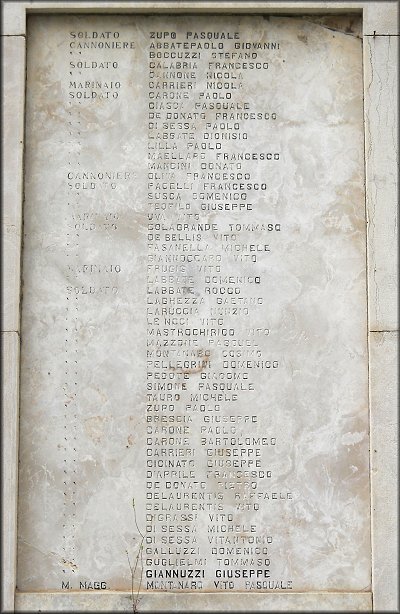 SOLDATO ZUPO PASQUALE
CANNONIERE ABBATEPAOLO GIOVANNI
" BOCCUZZI STEFANO
SOLDATO CALABRIA FRANCESCO
" CANNONE NICOLA
MARINAIO CARRIERI NICOLA
SOLDATO CARONE PAOLO
" CIASCA PASQUALE
" DE DONATO FRANCESCO
" DI SESSA PAOLO
" LABBATE DIONISIO
" LILLA PAOLO
" MAELLARO FRANCESCO
" MANCINI DONATO
CANNONIERE OLIVA FRANCESCO
SOLDATO PACELLI FRANCESCO
" SUSCA DOMENICO
" TEOFILO GIUSEPPE
MARINAIO UVA VITO
SOLDATO COLAGRANDE TOMMASO
" DE BELLIS VITO
" FASANELLA MICHELE
" GIANNOCCARO VITO
MARINAIO FRUGIS VITO
" LABBATE DOMENICO
SOLDATO LABBATE ROCCO
" LAGHEZZA GAETANO
" LARUCCIA NUNZIO
" LE NOCI VITO
" MASTROCHIRICO VITO
" MAZZONE
" MONTANARO COSIMO
" PELLEGRINI DOMENICO
" PEDOTE GIACOMO
" SIMONE PASQUALE
" TAURO MICHELE
" ZUPO PAOLO
" BRESCIA GIUSEPPE
" CARONE PAOLO
" CARONE BARTOLOMEO
" CARRIERI GIUSEPPE
" CICINATO GIUSEPPE
" D'APRILE FRANCESCO
" DE DONATO PIETRO
" DELAURENTIS RAFFAELE
" DELAURENTIS VITO
" DIGRASSI VITO
" DI SESSA MICHELE
" DI SESSA VITANTONIO
" GALLUZZI DOMENICO
" GUGLIELMI TOMMASO
" GIANNUZZI GIUSEPPE
M. MAGG. VITO PASQUALE